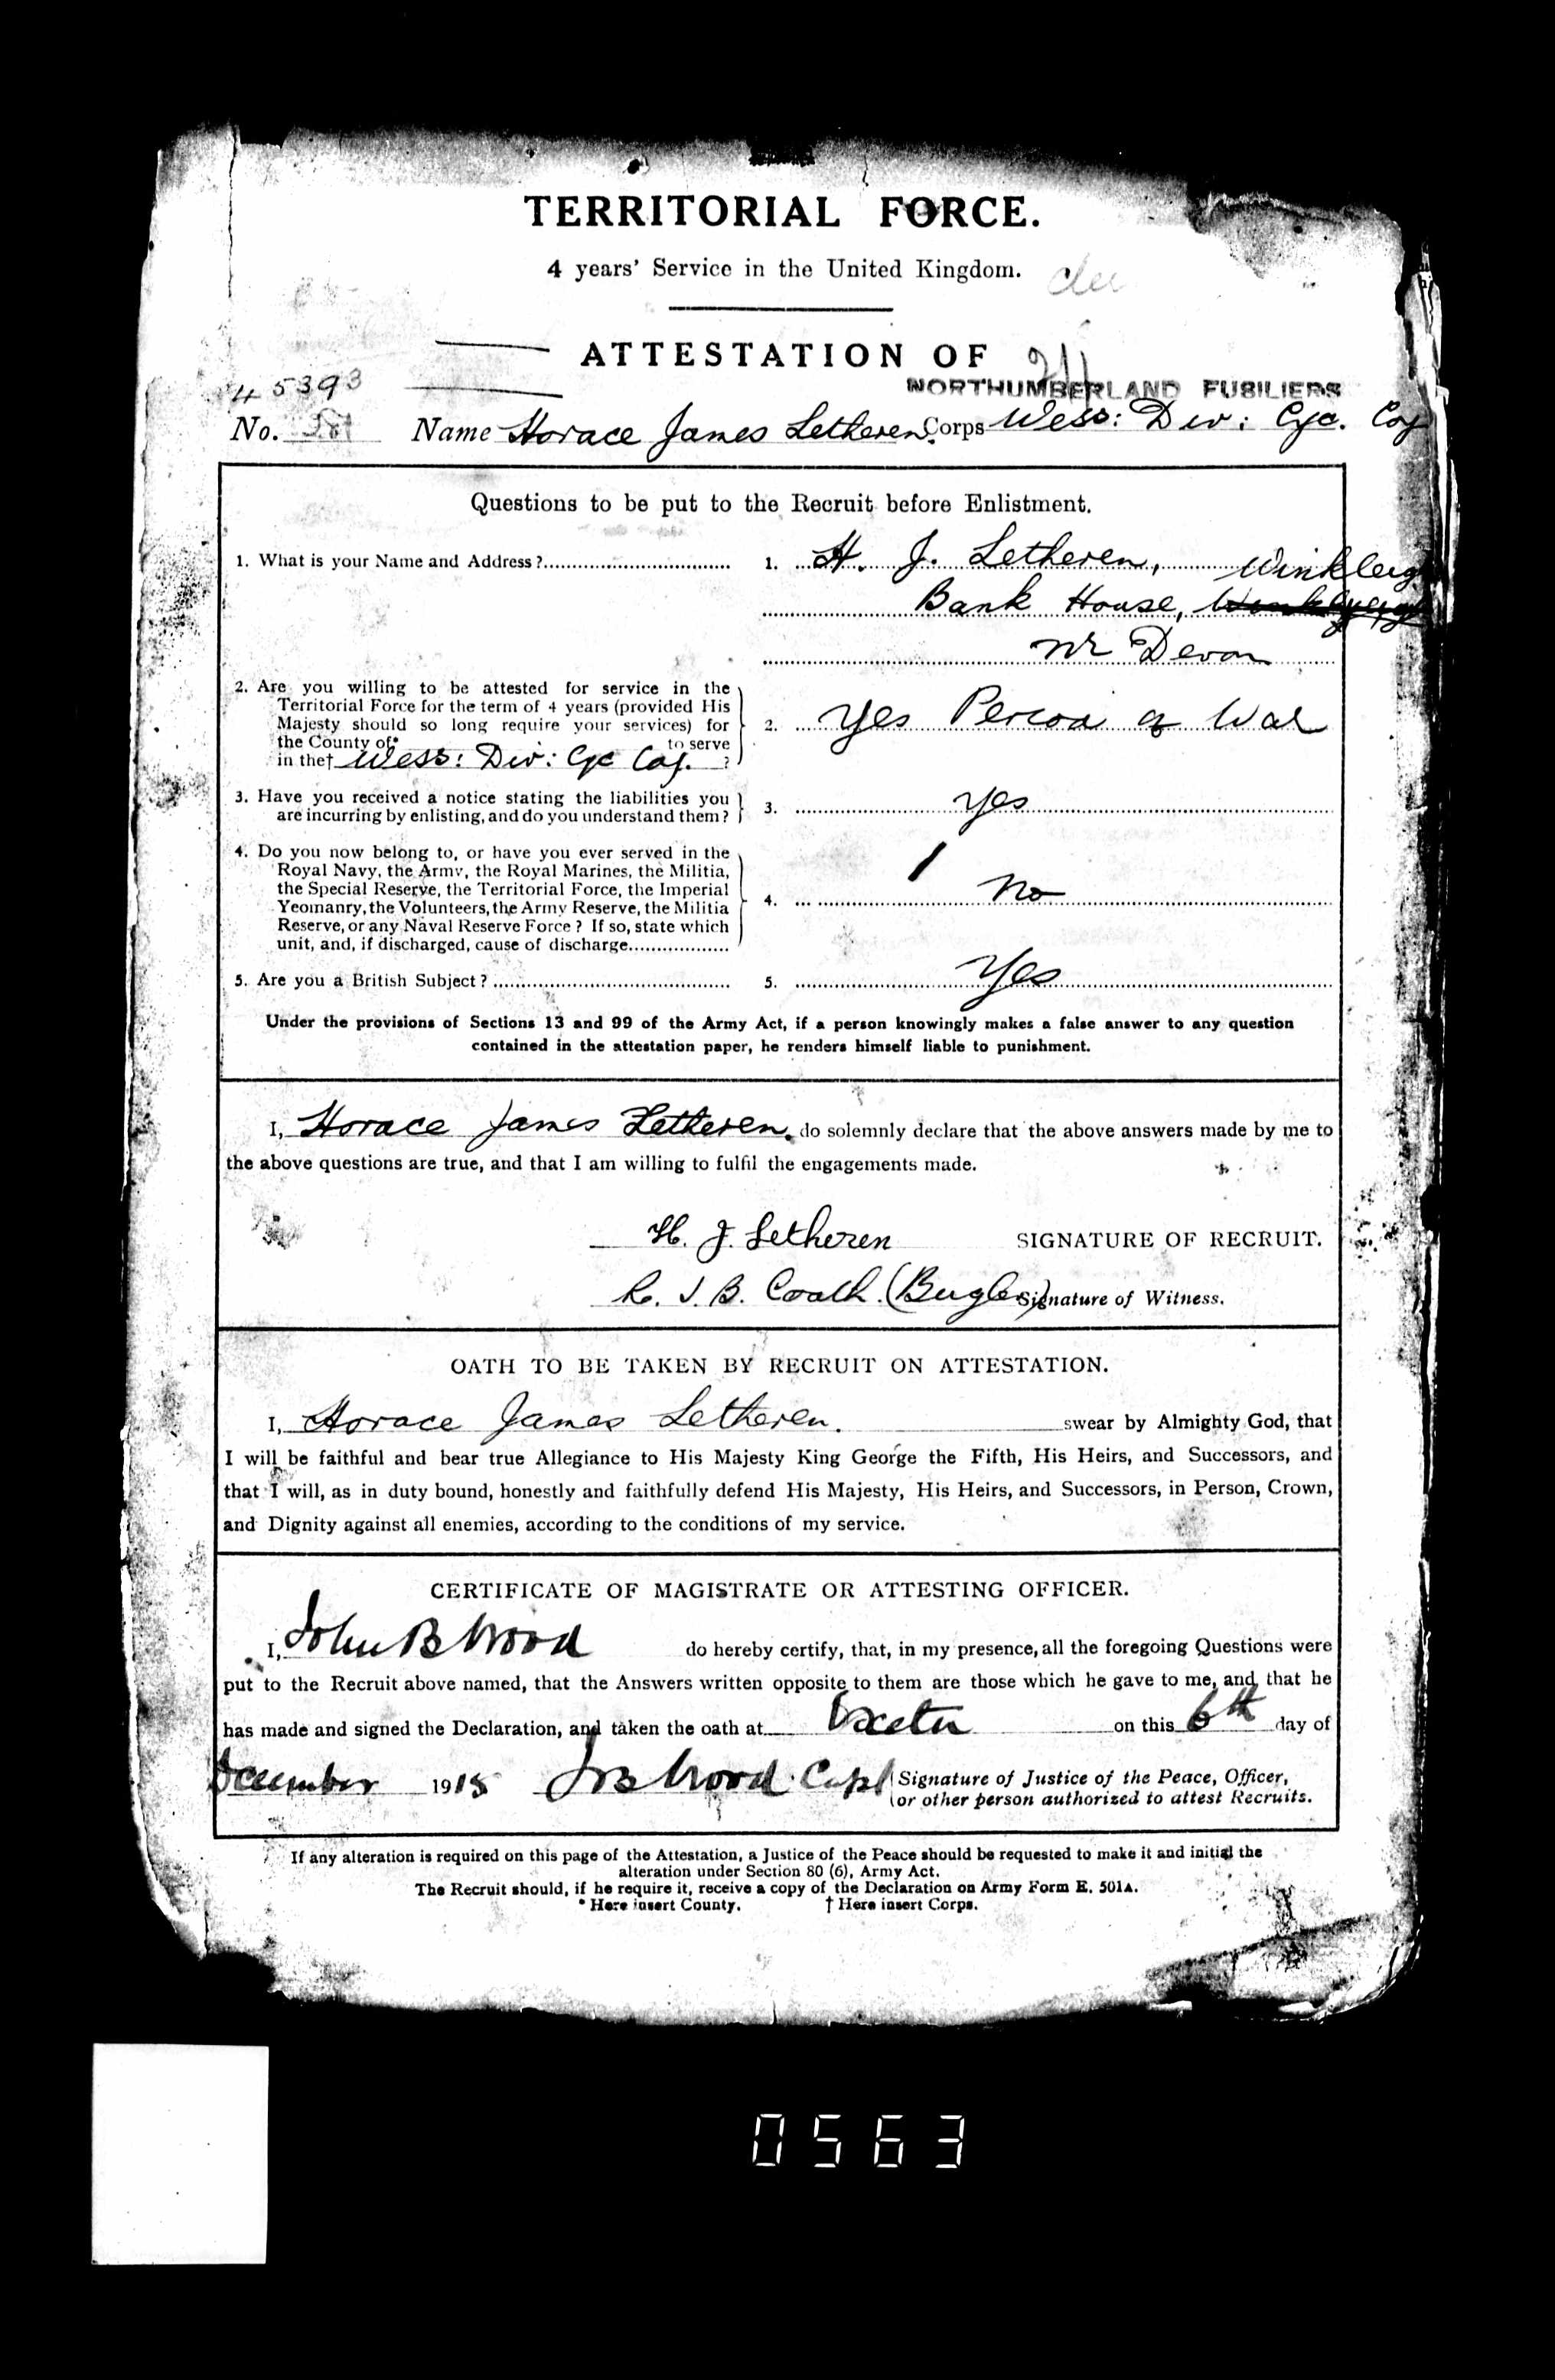 TERRITORIAL FORCE.
4 years' Service in the United Kingdom.
ATTESTATION OF
NORTHUMBERLAND FUSILIERS
45393
No. Name Horace James Letheren. Corps Wess: Div: Cyc. Coy
Questions to be put to the Recruit before Enlistment.
1. What is your Name and Address? 1. H. J. Letheren, Winkleigh
Bank House, Winkleigh
Nr Devon
2. Are you willing to be attested for service in the
Territorial Force for the term of 4 years (provided His
Majesty should so long require your services) for
the County of* to serve
in the† Wess: Div: Cyc Coy. ?
2. Yes Period of War
3. Have you received a notice stating the liabilities you
are incurring by enlisting, and do you understand them?
3. Yes
4. Do you now belong to, or have you ever served in the
Royal Navy, the Army, the Royal Marines, the Militia,
the Special Reserve, the Territorial Force, the Imperial
Yeomanry, the Volunteers, the Army Reserve, the Militia
Reserve, or any Naval Reserve Force? If so, state which
unit, and, if discharged, cause of discharge
4. No
5. Are you a British Subject? 5. Yes
Under the provisions of Sections 13 and 99 of the Army Act, if a person knowingly makes a false answer to any question
contained in the attestation paper, he renders himself liable to punishment.
I, Horace James Letheren, do solemnly declare that the above answers made by me to
the above questions are true, and that I am willing to fulfil the engagements made.
H. J. Letheren SIGNATURE OF RECRUIT.
R. J. B. Coath. (Bugler) Signature of Witness.
OATH TO BE TAKEN BY RECRUIT ON ATTESTATION.
I, Horace James Letheren. swear by Almighty God, that
I will be faithful and bear true Allegiance to His Majesty King George the Fifth, His Heirs, and Successors, and
that I will, as in duty bound, honestly and faithfully defend His Majesty, His Heirs, and Successors, in Person, Crown,
and Dignity against all enemies, according to the conditions of my service.
CERTIFICATE OF MAGISTRATE OR ATTESTING OFFICER.
I, John B Wood do hereby certify, that, in my presence, all the foregoing Questions were
put to the Recruit above named, that the Answers written opposite to them are those which he gave to me, and that he
has made and signed the Declaration, and taken the oath at Exeter on this 6th day of
December 1915 JB Wood. Capt Signature of Justice of the Peace, Officer,
or other person authorized to attest Recruits.
If any alteration is required on this page of the Attestation, a Justice of the Peace should be requested to make it and initial the
alteration under Section 80 (6), Army Act.
The Recruit should, if he require it, receive a copy of the Declaration on Army Form E. 501A.
* Here insert County. † Here insert Corps.
0563